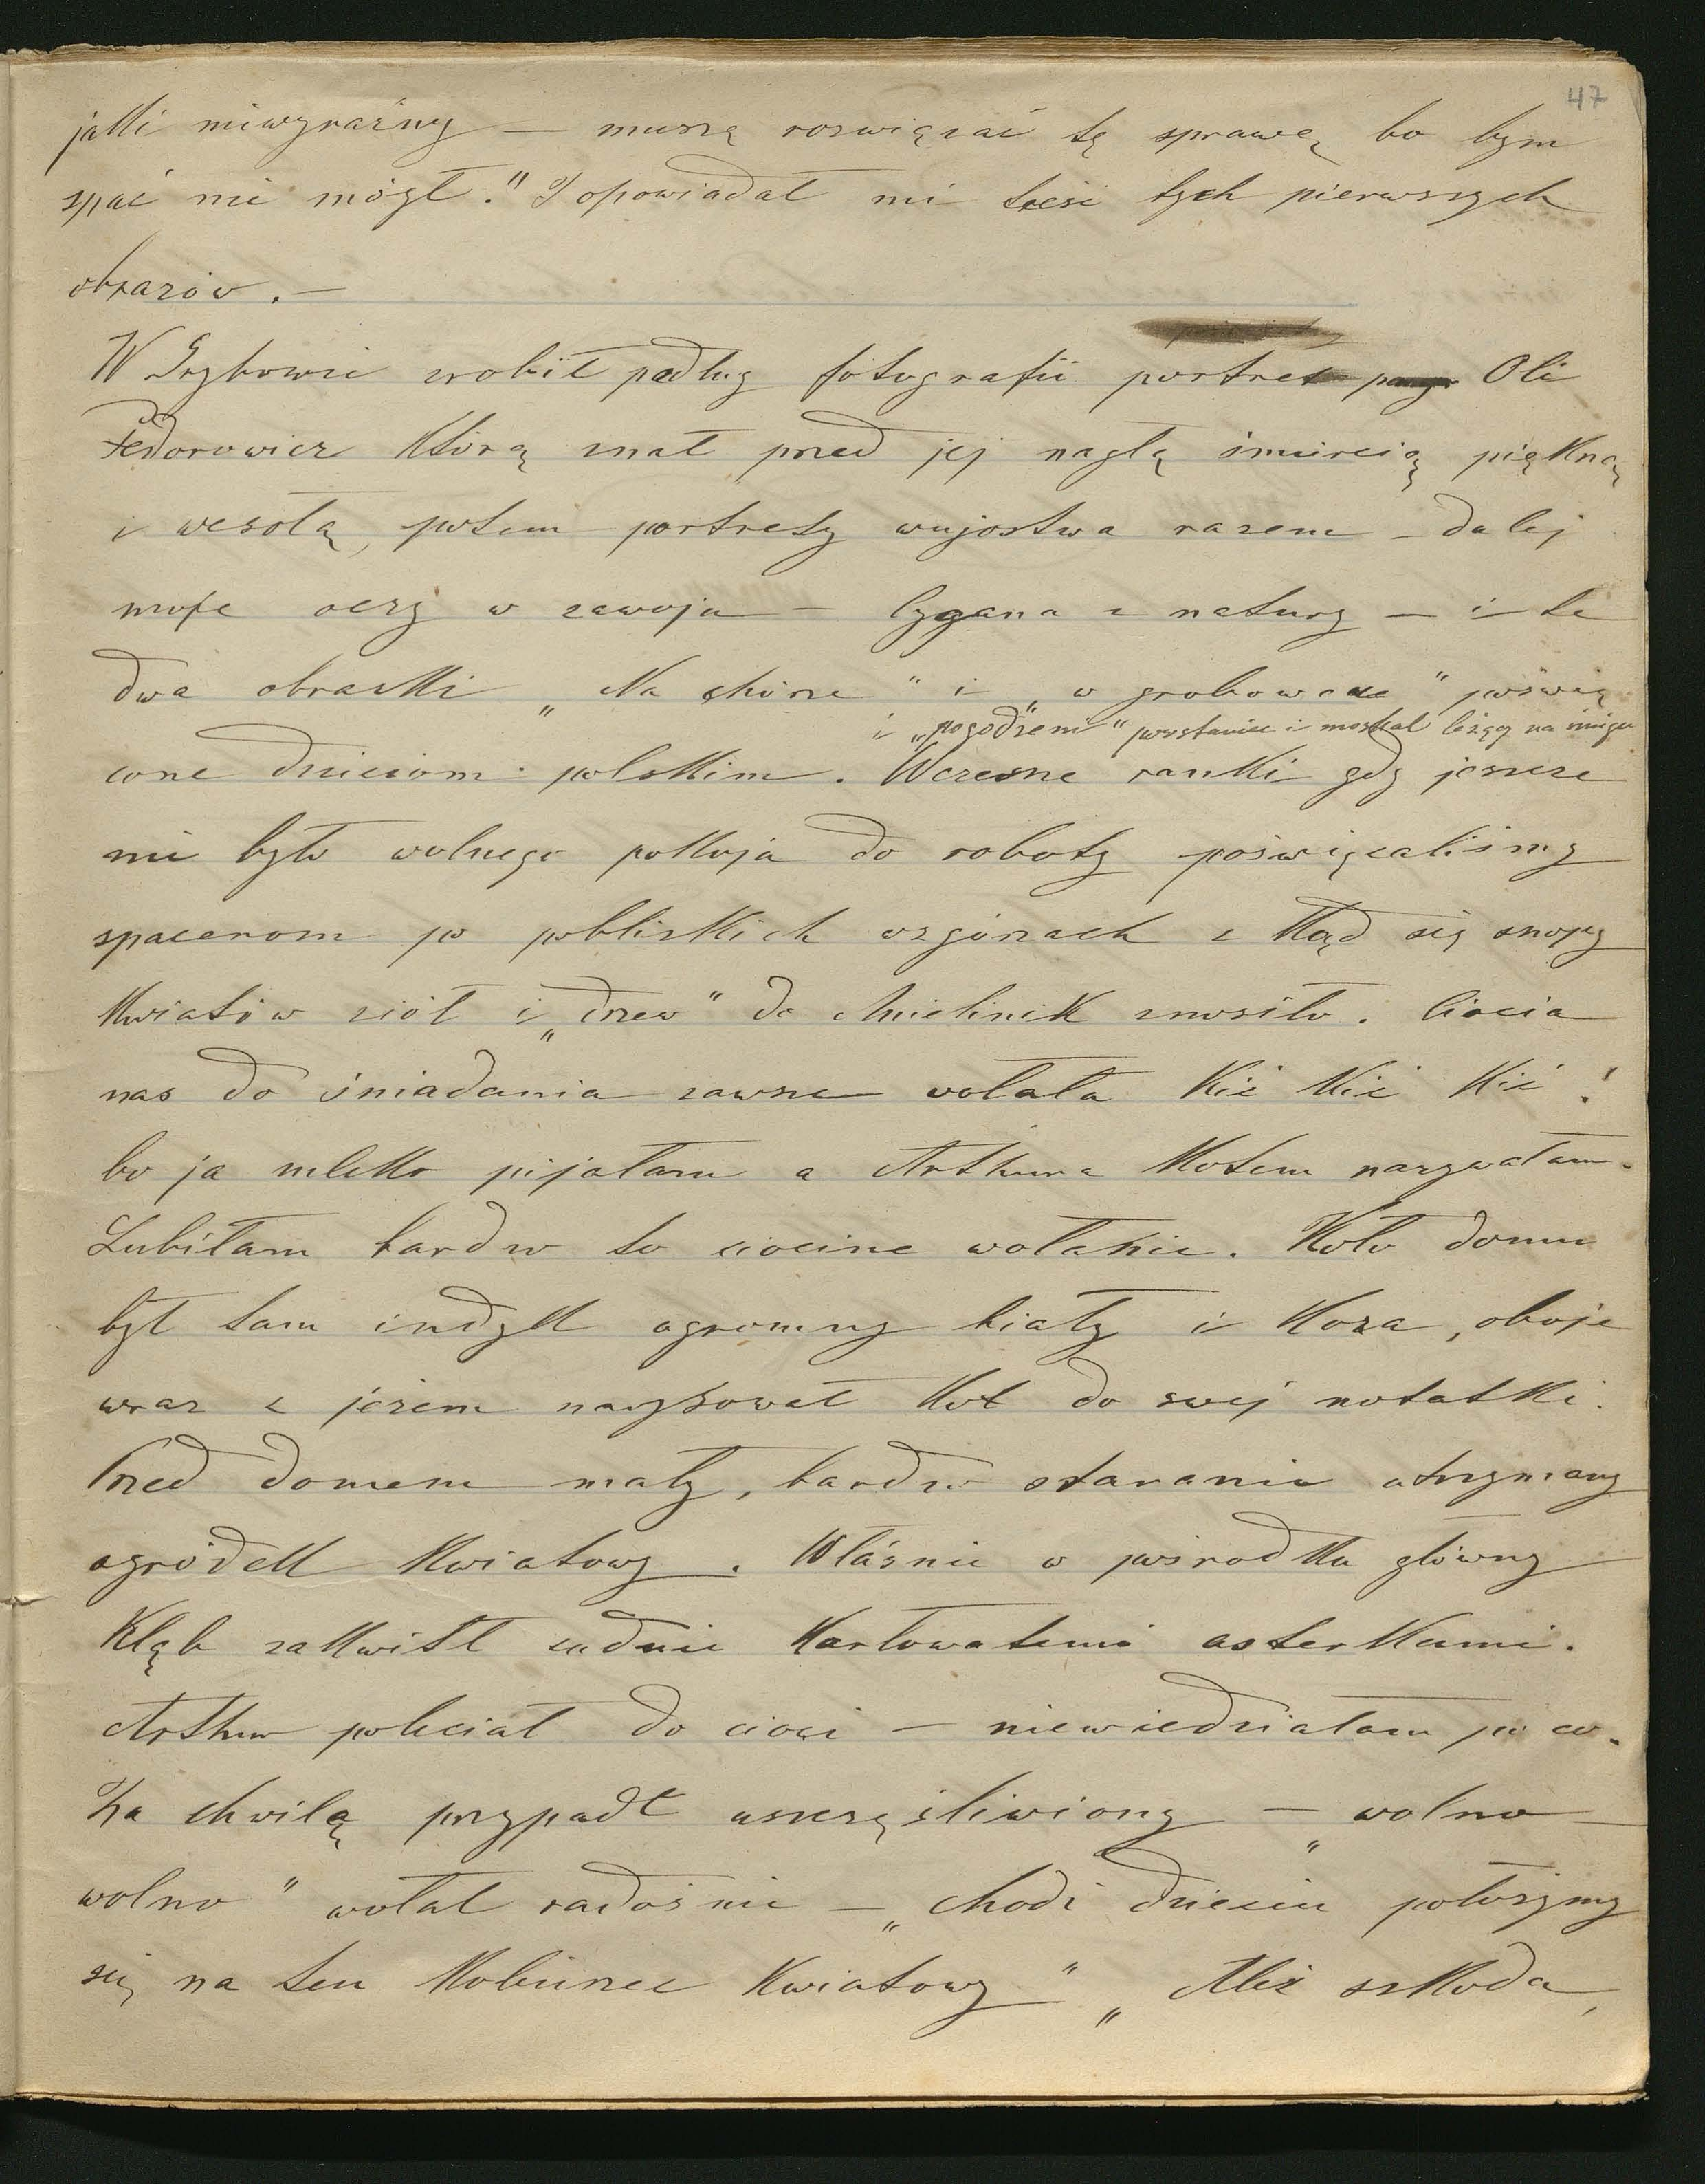 47
jakiś niewyraźny — muszę rozwiązać tę sprawę bo bym
spać nie mógł." I opowiadał mi treść tych pierwszych
obrazów. —
W Grybowie zrobił podług fotografii portret Oli
Fedorowicz którą znał przed jej nagłą śmiercią piękną
i wesołą, potem portrety wujostwa razem — dalej
moje oczy w zawoju — cygana z natury — i te
dwa obrazki „Na chórze" i „w grobowcu" poświę
i „pogodzeni" powstaniec i moskal leżący na śniegu
cone dzieciom polskim. Wczesne ranki gdy jeszcze
nie było wolnego pokoju do roboty poświęcaliśmy
spacerom po pobliskich wzgórzach z kąd się snopy
kwiatów ziół i „drzew" do Chmielnik znosiło. Ciocia
nas do śniadania zawsze wołała Kić Kić Kić!
bo ja mleko pijałam a Arthura Kotem nazywałam.
Lubiłam bardzo to ciocine wołanie. Koło domu
był tam indyk ogromny biały i Koza, oboje
wraz z jeżem narysował Kot do swej notatki.
Przed domem mały, bardzo starannie utrzymany
ogródek kwiatowy. Właśnie w pośrodku główny
Kląb zakwitł cudnie Karłowatemi asterkami.
Arthur poleciał do cioci — niewiedziałam po co.
Za chwilę przypadł uszczęśliwiony — „wolno —
wolno" wołał radośnie — „chodź dziecko położymy
się na ten Kobierzec Kwiatowy" „Ależ szkoda,